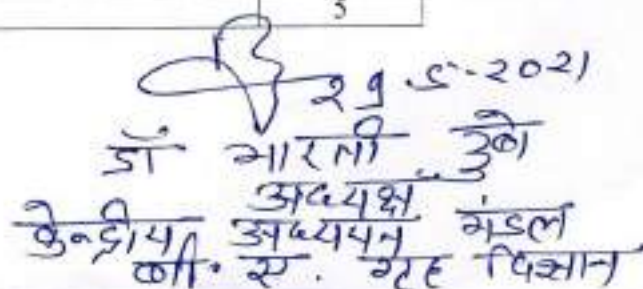 3
29.5.2021
डॉ भारती दुबे
अध्यक्ष
केन्द्रीय अध्ययन मंडल
बी. ए. गृह विज्ञान